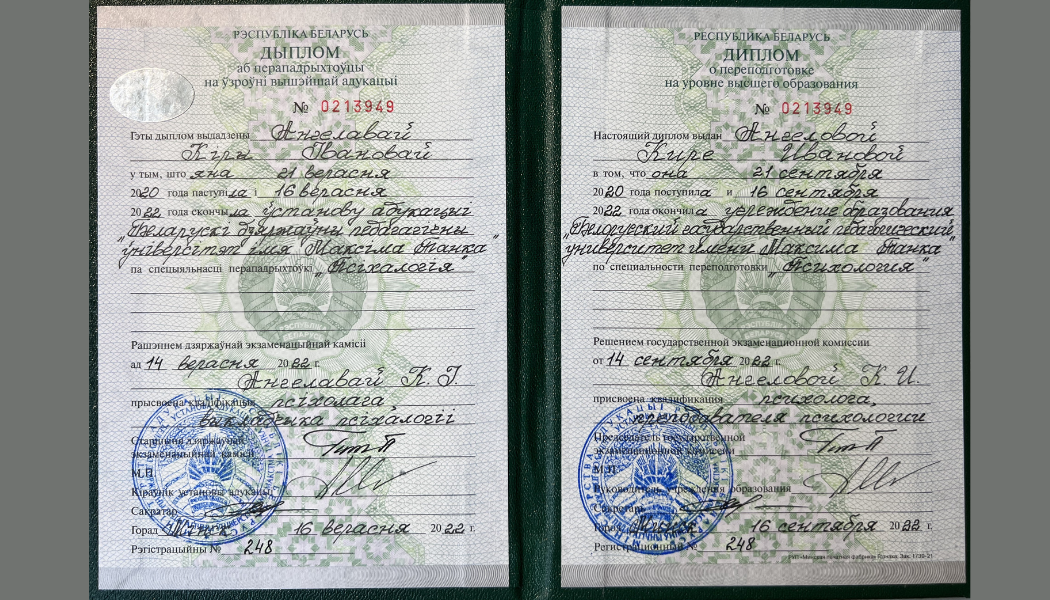 РЭСПУБЛІКА БЕЛАРУСЬ
ДЫПЛОМ
аб перападрыхтоўцы
на ўзроўні вышэйшай адукацыі
№ 0213949
Гэты дыплом выдадзены Ангелавай
Кіры Іванавай
у тым, што яна 21 верасня
2020 года паступіла і 16 верасня
2022 года скончыла ўстанову адукацыі
„Беларускі дзяржаўны педагагічны
ўніверсітэт імя Максіма Танка“
па спецыяльнасці перападрыхтоўкі „Псіхалогія“
Рашэннем дзяржаўнай экзаменацыйнай камісіі
ад 14 верасня 2022 г.
Ангелавай К. І.
прысвоена кваліфікацыя псіхолага
выкладчыка псіхалогіі
Старшыня дзяржаўнай
экзаменацыйнай камісіі
М.П.
Кіраўнік установы адукацыі
Сакратар
Горад Мінск 16 верасня 2022 г.
Рэгістрацыйны № 248
РЕСПУБЛИКА БЕЛАРУСЬ
ДИПЛОМ
о переподготовке
на уровне высшего образования
№ 0213949
Настоящий диплом выдан Ангеловой
Кире Ивановой
в том, что она 21 сентября
2020 года поступила и 16 сентября
2022 года окончила учреждение образования
„Белорусский государственный педагогический
университет имени Максима Танка“
по специальности переподготовки „Психология“
Решением государственной экзаменационной комиссии
от 14 сентября 2022 г.
Ангеловой К. И.
присвоена квалификация психолога,
преподавателя психологии
Председатель государственной
экзаменационной комиссии
М.П.
Руководитель учреждения образования
Секретарь
Город Минск 16 сентября 2022 г.
Регистрационный № 248